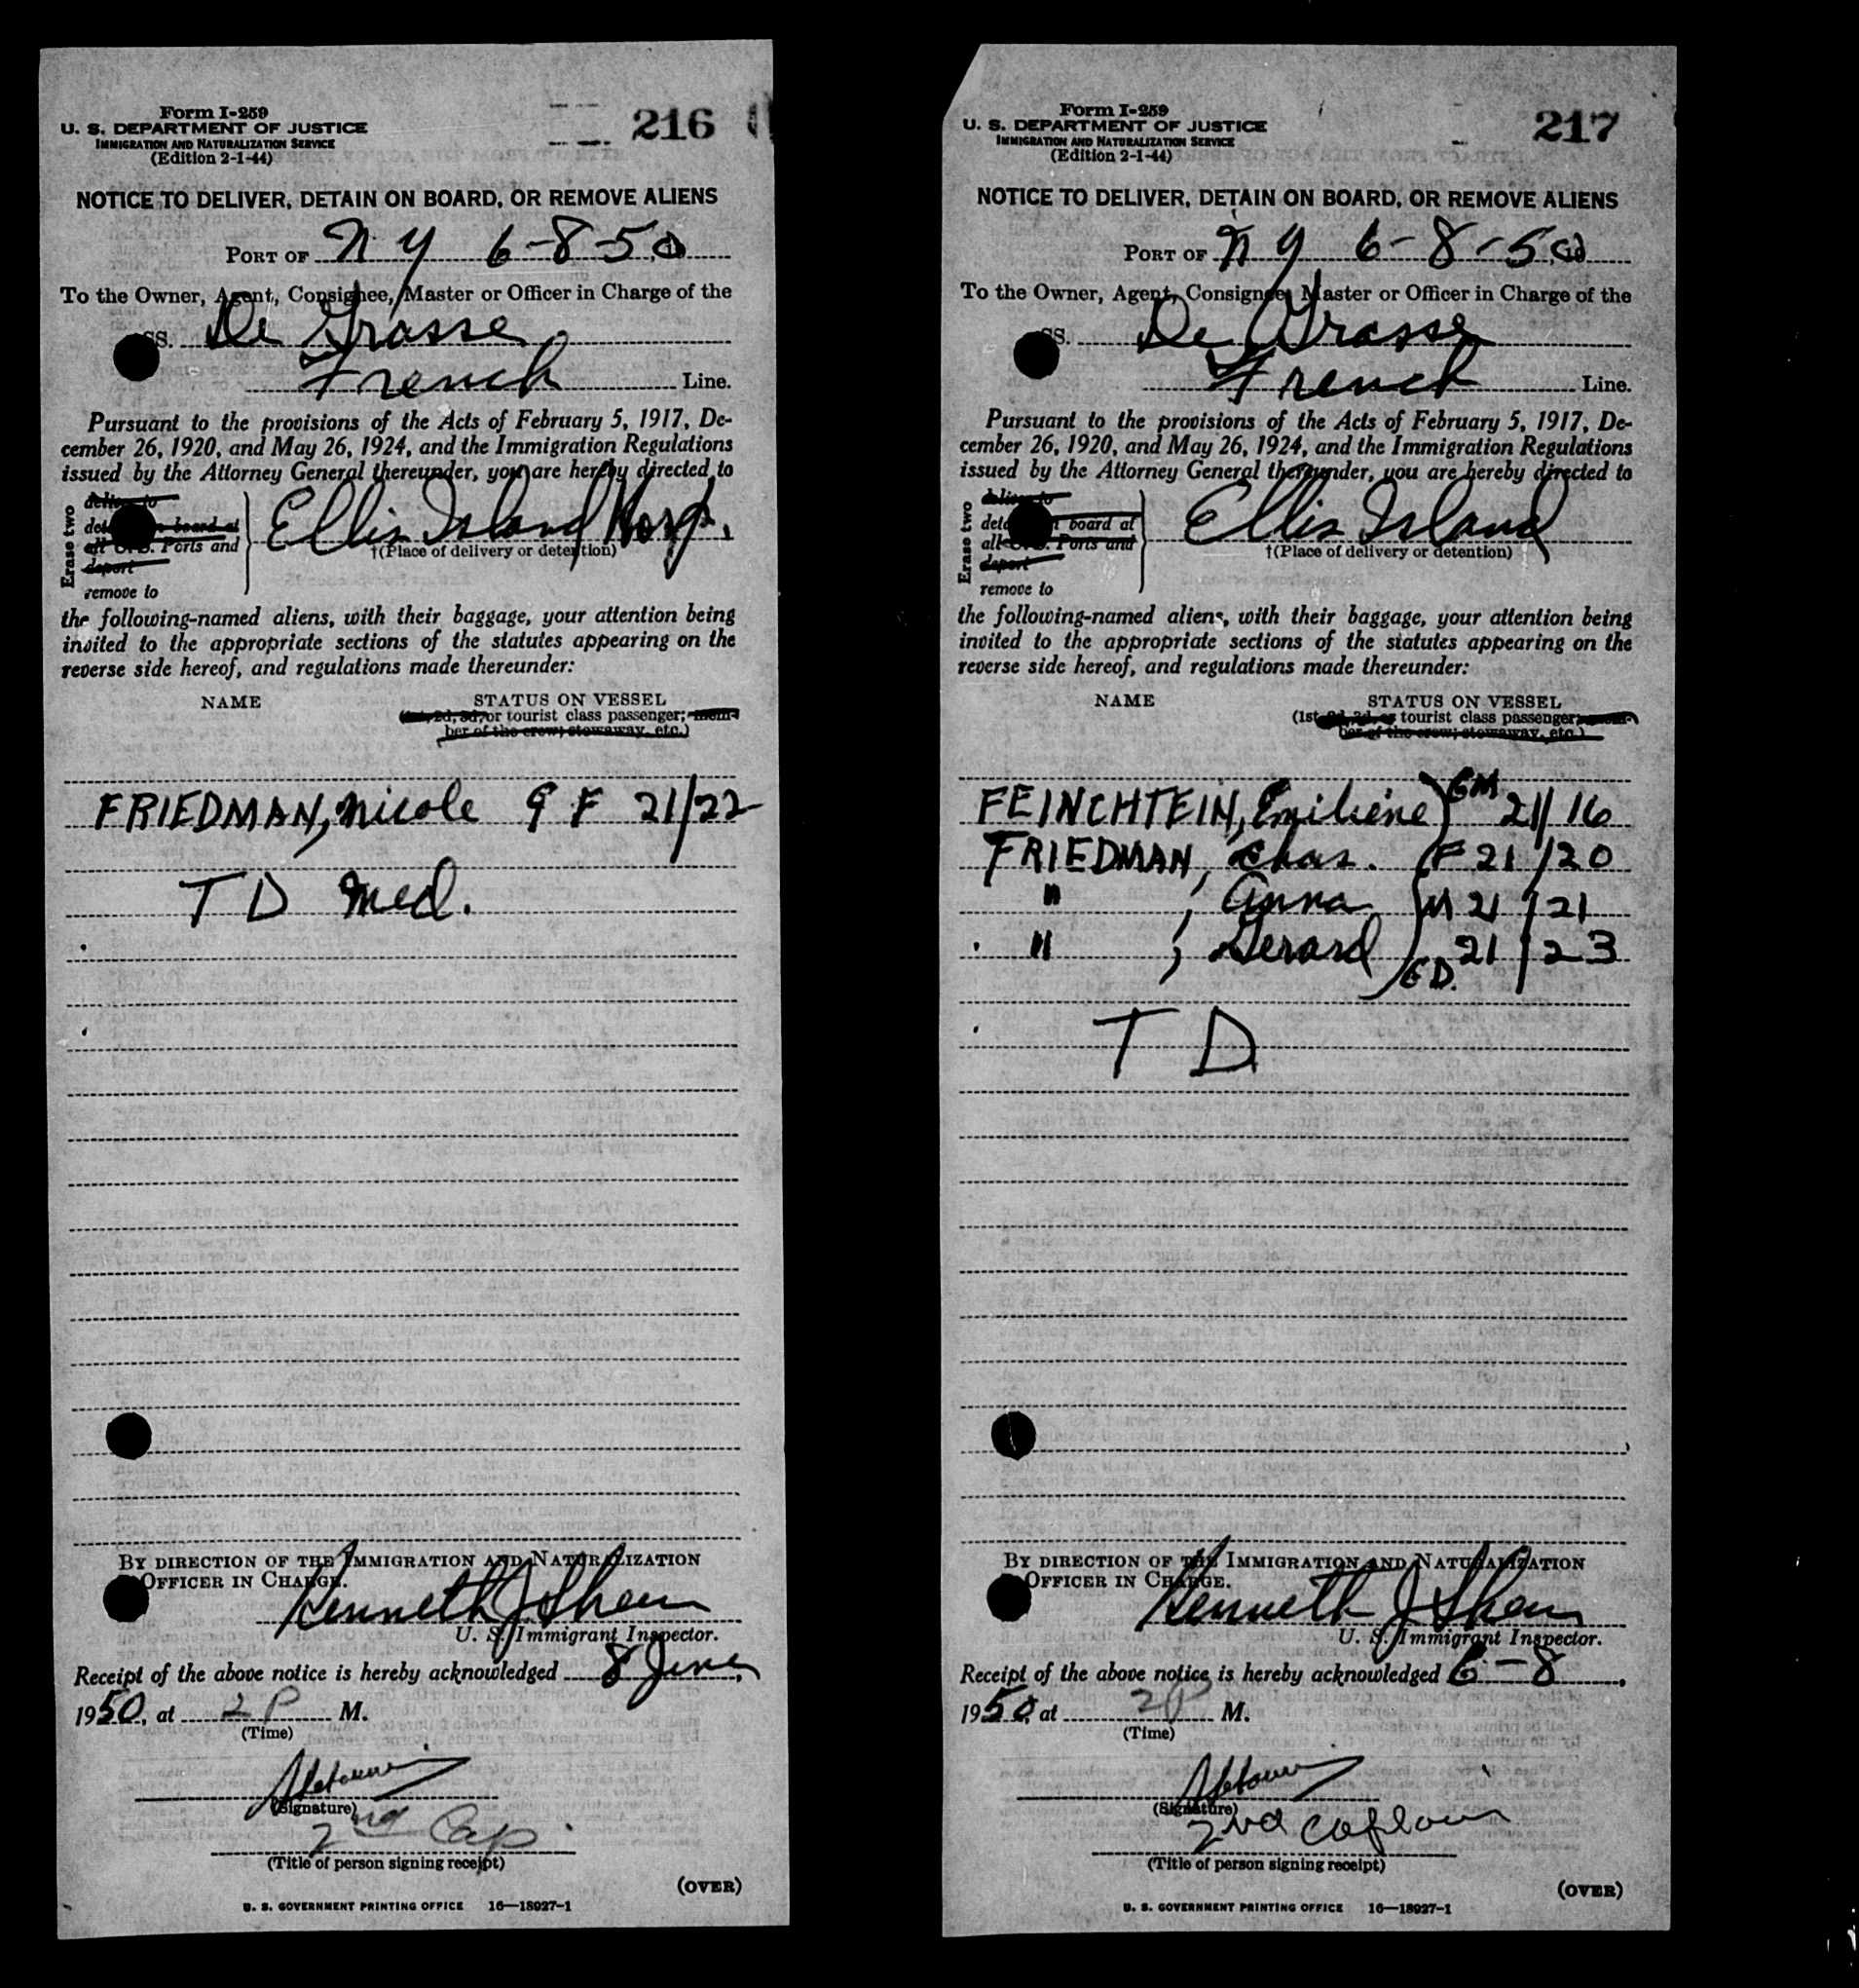 Form I-259
216
U. S. DEPARTMENT OF JUSTICE
IMMIGRATION AND NATURALIZATION SERVICE
(Edition 2-1-44)
NOTICE TO DELIVER, DETAIN ON BOARD, OR REMOVE ALIENS
PORT OF N Y 6-8-50
To the Owner, Agent, Consignee, Master or Officer in Charge of the
SS. De Grasse
French Line.
Pursuant to the provisions of the Acts of February 5, 1917, De-
cember 26, 1920, and May 26, 1924, and the Immigration Regulations
issued by the Attorney General thereunder, you are hereby directed to
Erase two
deliver to
board at
all U.S. Ports and
deport
remove to
Ellis Island Hosp.
†(Place of delivery or detention)
the following-named aliens, with their baggage, your attention being
invited to the appropriate sections of the statutes appearing on the
reverse side hereof, and regulations made thereunder:
NAME STATUS ON VESSEL
(1st, 2d, 3d, or tourist class passenger; mem-
ber of the crew; stowaway, etc.)
FRIEDMAN, Nicole 9 F 21/22
T D Med.
BY DIRECTION OF THE IMMIGRATION AND NATURALIZATION
OFFICER IN CHARGE.
Kenneth J Shea
U. S. Immigrant Inspector.
Receipt of the above notice is hereby acknowledged 8 June,
1950, at 2 P M.
(Time)
(Signature)
2nd Cap
(Title of person signing receipt)
(OVER)
U. S. GOVERNMENT PRINTING OFFICE 16—18927-1
Form I-259
217
U. S. DEPARTMENT OF JUSTICE
IMMIGRATION AND NATURALIZATION SERVICE
(Edition 2-1-44)
NOTICE TO DELIVER, DETAIN ON BOARD, OR REMOVE ALIENS
PORT OF N Y 6-8-50
To the Owner, Agent, Consignee, Master or Officer in Charge of the
SS. De Grasse
French Line.
Pursuant to the provisions of the Acts of February 5, 1917, De-
cember 26, 1920, and May 26, 1924, and the Immigration Regulations
issued by the Attorney General thereunder, you are hereby directed to
Erase two
deliver to
board at
all U.S. Ports and
deport
remove to
Ellis Island
†(Place of delivery or detention)
the following-named aliens, with their baggage, your attention being
invited to the appropriate sections of the statutes appearing on the
reverse side hereof, and regulations made thereunder:
NAME STATUS ON VESSEL
(1st, 2d, 3d, or tourist class passenger; mem-
ber of the crew; stowaway, etc.)
FEINCHTEIN, Emiliene GM 21/16
FRIEDMAN, Chas. F 21/20
" , Anna M 21/21
" , Gerard GD. 21/23
T D
BY DIRECTION OF THE IMMIGRATION AND NATURALIZATION
OFFICER IN CHARGE.
Kenneth J Shea
U. S. Immigrant Inspector.
Receipt of the above notice is hereby acknowledged 6-8,
1950, at 2P M.
(Time)
(Signature)
2nd Captain
(Title of person signing receipt)
(OVER)
U. S. GOVERNMENT PRINTING OFFICE 16—18927-1